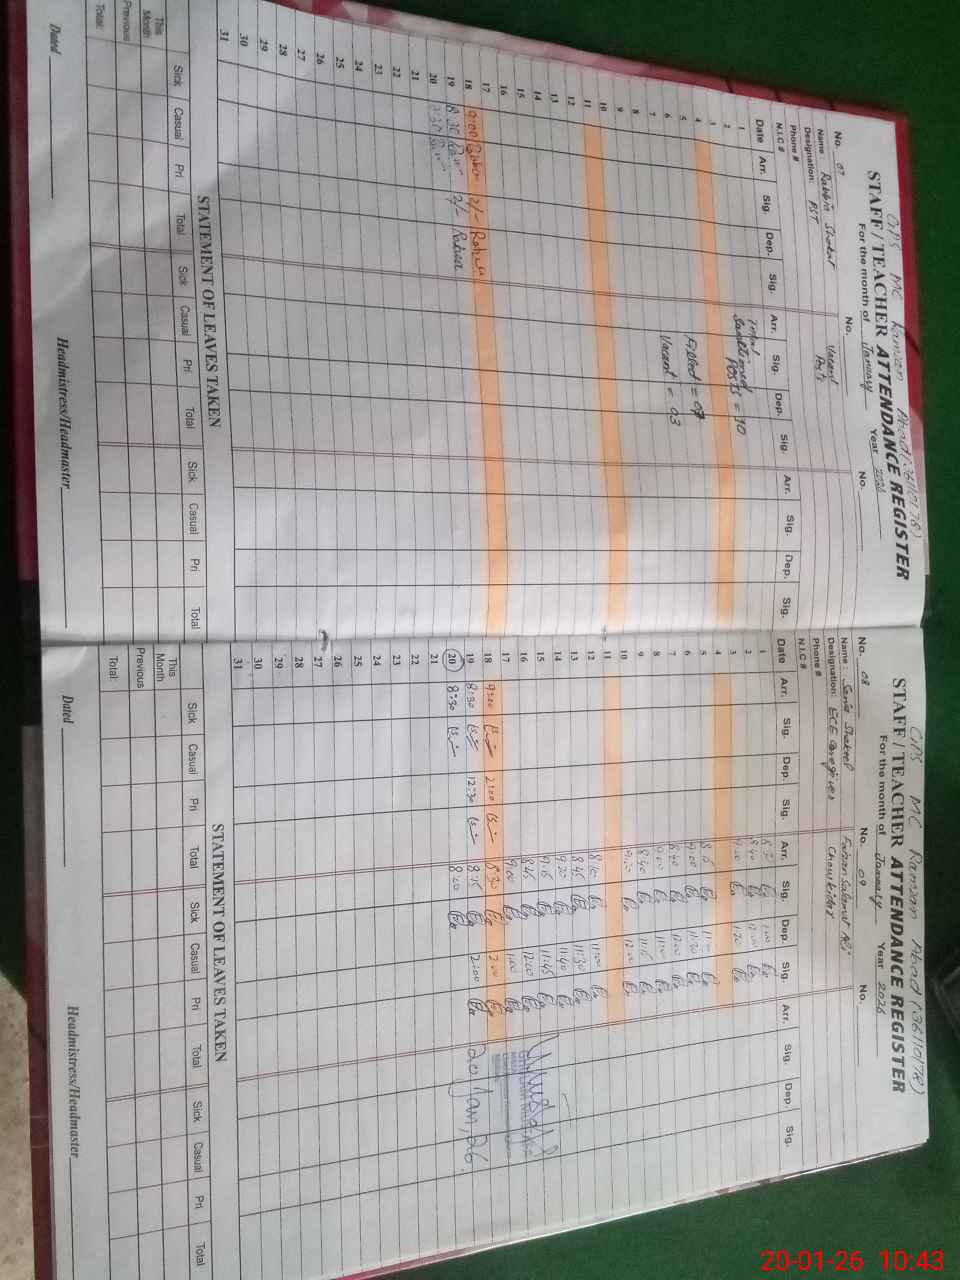 GPS MC Ramzan Abad (36110178)
STAFF / TEACHER ATTENDANCE REGISTER
For the month of January Year 2026
No. 07 No. No.
Name: Rabbia Shakat Vacant
Designation: PST Posts
Phone #
N.I.C #
Date Arr. Sig. Dep. Sig. Arr. Sig. Dep. Sig. Arr. Sig. Dep. Sig.
1 Total
2 Sanctioned Posts = 10
3
4
5 Filled = 07
6 Vacant = 03
7
8
9
10
11
12
13
14
15
16
17
18 9:00 2/-
19 8:30 2/-
20
21
22
23
24
25
26
27
28
29
30
31
STATEMENT OF LEAVES TAKEN
Sick Casual Pri Total Sick Casual Pri Total Sick Casual Pri Total
This Month
Previous
Total:
Dated Headmistress/Headmaster
GPS MC Ramzan Abad (36110178)
STAFF / TEACHER ATTENDANCE REGISTER
For the month of January Year 2026
No. 08 No. 09 No.
Name: Sania Shakeel
Designation: ECE Caregiver Chowkidar
Phone #
N.I.C #
Date Arr. Sig. Dep. Sig. Arr. Sig. Dep. Sig. Arr. Sig. Dep. Sig.
1
2 8:40 12:00
3 9:00 1:20
4
5 8:15
6 9:00 11:30
7 8:40 12:00
8 9:00 11:00
9 8:40 11:15
10 12:00
11
12 11:00
13 8:45 11:30
14 9:20 11:40
15 9:15 11:45
16 8:45 12:00
17 9:00 1:00
18 9:00 2:00 8:30 2:00
19 8:30 12:30 8:15 2:00
20 8:30 8:00 20/Jan/26
21
22
23
24
25
26
27
28
29
30
31
STATEMENT OF LEAVES TAKEN
Sick Casual Pri Total Sick Casual Pri Total Sick Casual Pri Total
This Month
Previous
Total:
Dated Headmistress/Headmaster
20-01-26 10:43